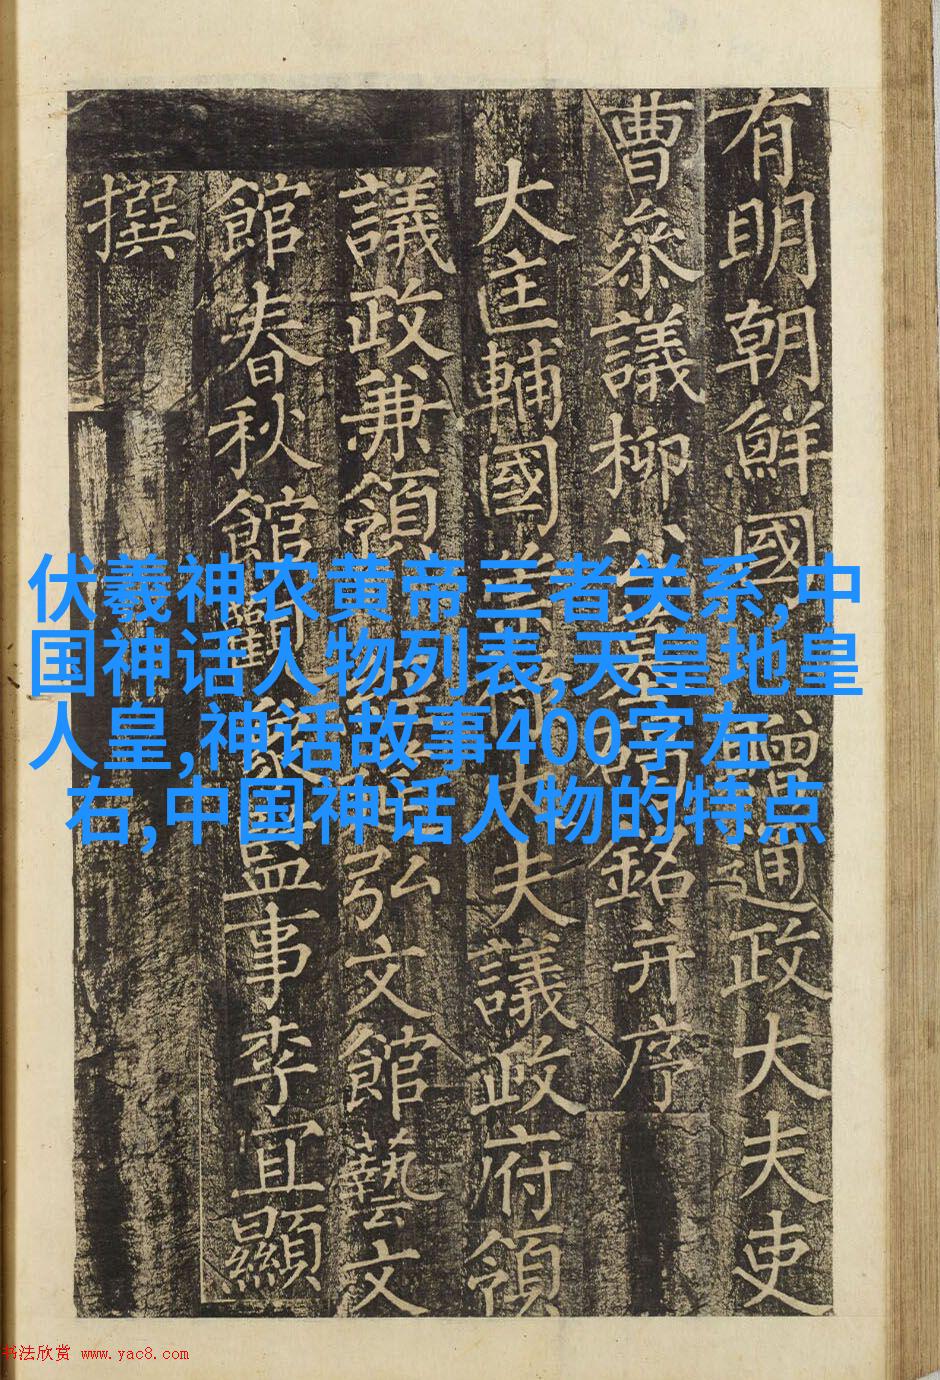 有明朝鮮國贈通政大夫吏
曹叅議柳公墓碣銘并序
大匡輔國崇祿大夫議政府領
議政兼領弘文館藝文
館春秋館觀象監事李宜顯
撰
伏羲神农黄帝三者关系,中
国神话人物列表,天皇地皇
人皇,神话故事400字左
右,中国神话人物的特点
书法欣赏 www.yac8.com